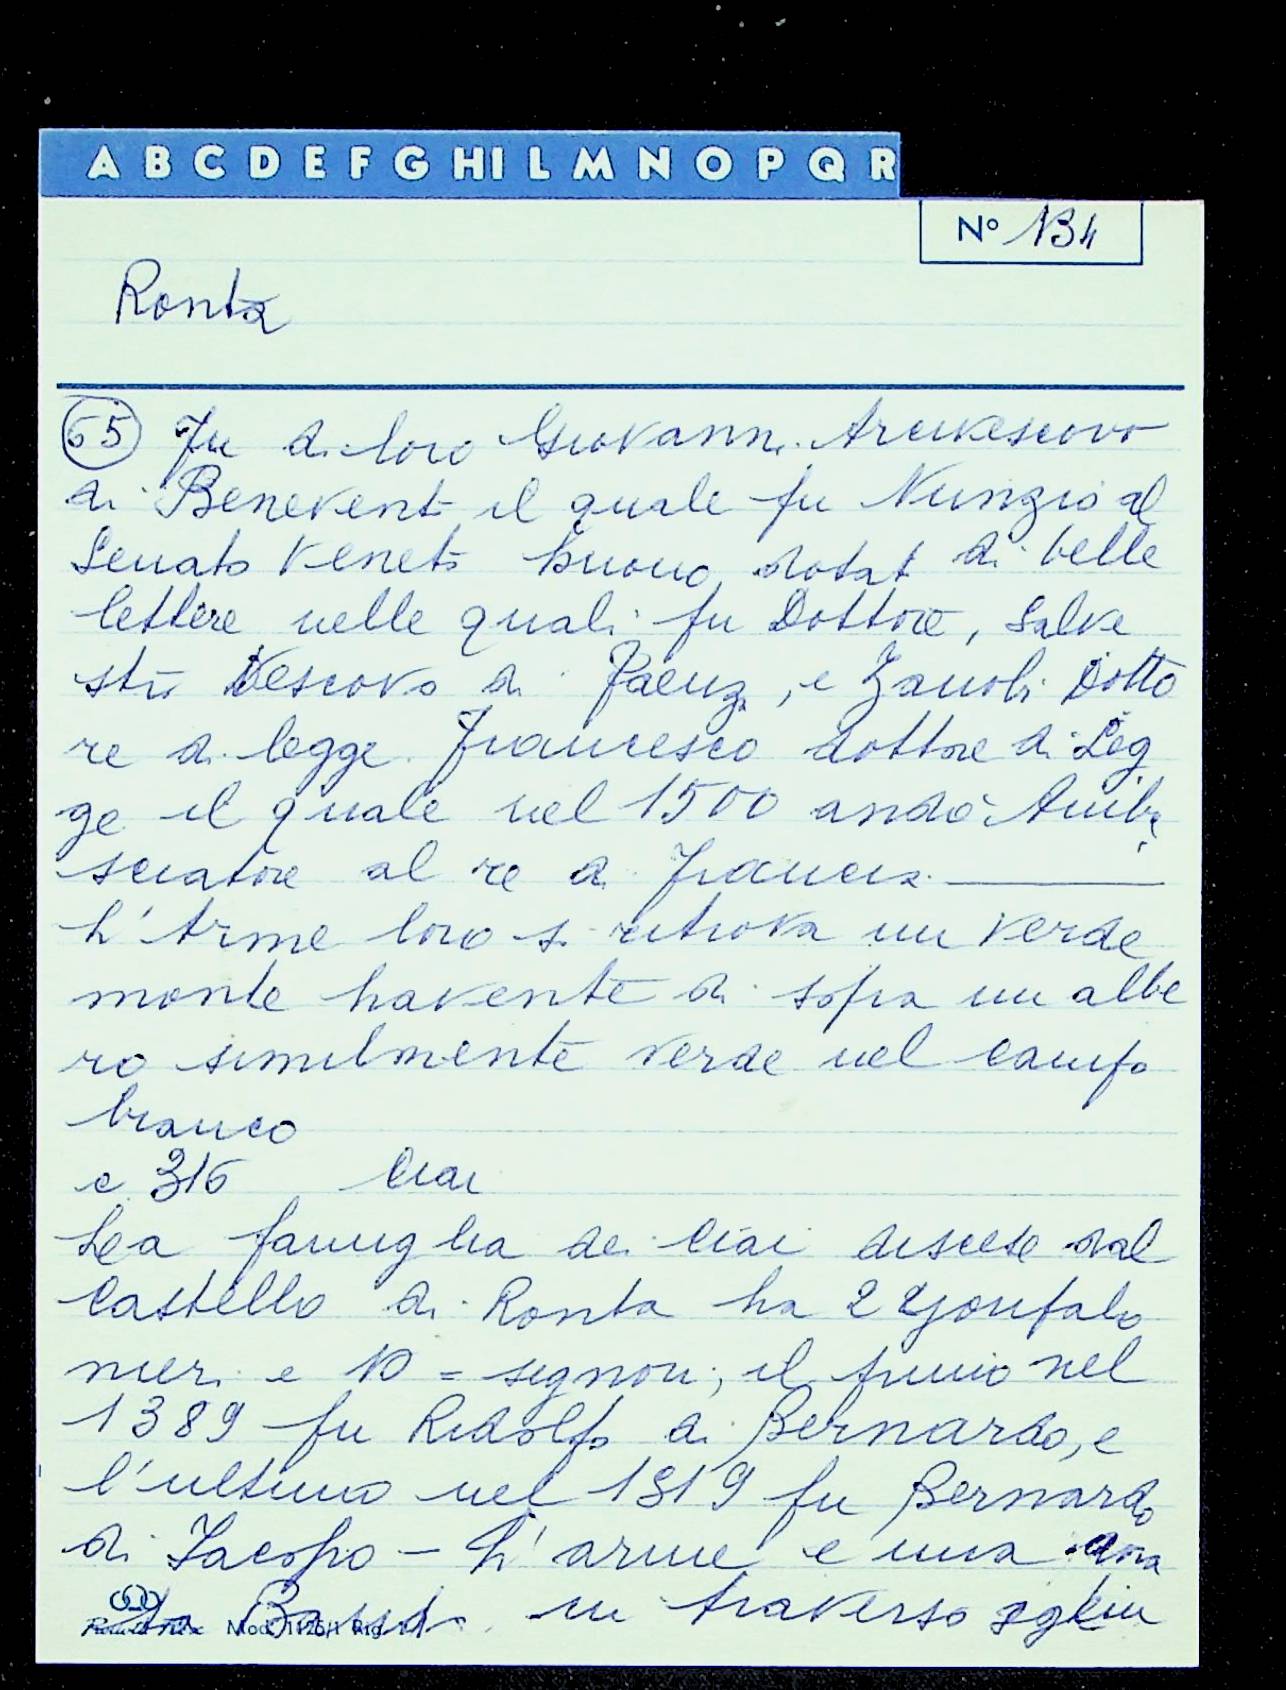 A B C D E F G H I L M N O P Q R
Nº 134
Ronta
65 Fu di loro Giovanni Arcivescovo
di Benevento il quale fu Nunzio al
Senato Veneto huomo dotat di belle
lettere nelle quali fu Dottore, Salve
stro Vescovo di Faenza, e Zanobi Dotto
re di legge. Francesco dottore di Leg
ge il quale nel 1500 andò Amba
sciatore al re di Francia
L'Arme loro si ritrova un verde
monte havente di sopra un albe
ro similmente verde nel campo
bianco
c 316 Ciai
La famiglia dei Ciai discese dal
Castello di Ronta ha 2 Gonfalo
nieri e 10 = signori; il primo nel
1389 fu Ridolfo di Bernardo, e
l'ultimo nel 1519 fu Bernardo
di Jacopo - L'arme e una
in traverso
Mod.